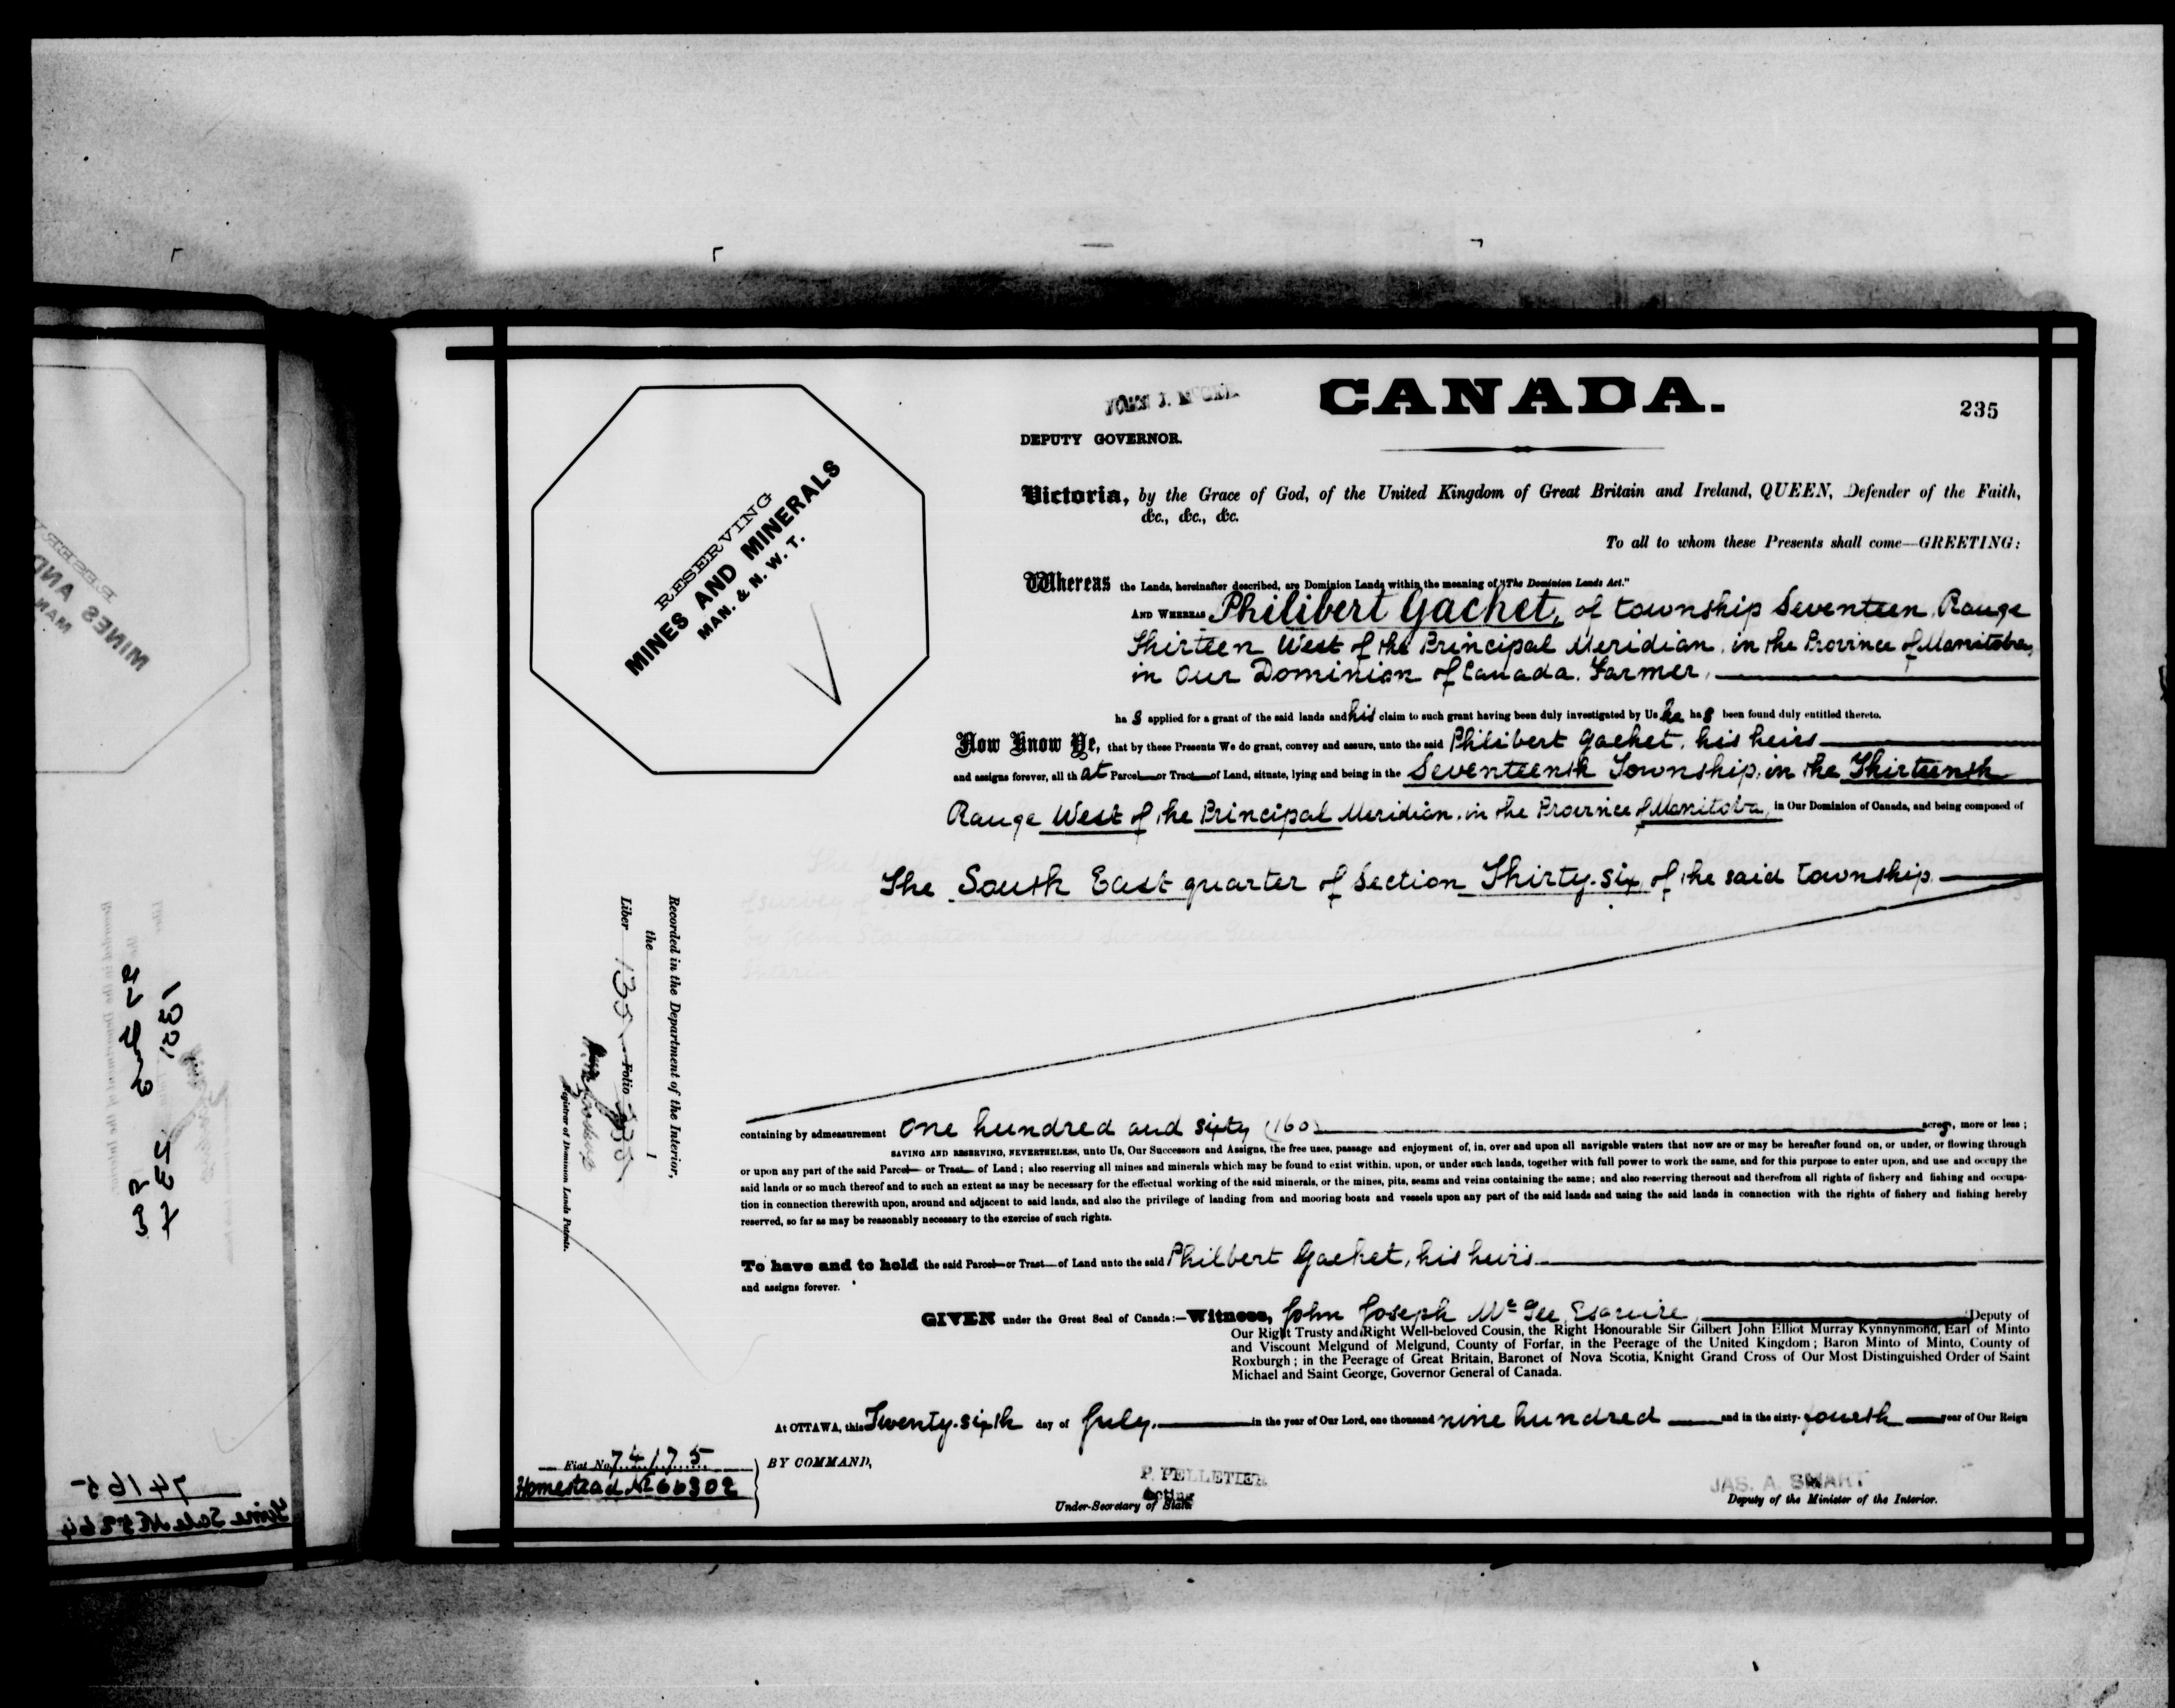 JOHN J. McGEE
CANADA.
235
DEPUTY GOVERNOR.
RESERVING
MINES AND MINERALS
MAN. & N. W. T.
Victoria, by the Grace of God, of the United Kingdom of Great Britain and Ireland, QUEEN, Defender of the Faith,
&c., &c., &c.
To all to whom these Presents shall come—GREETING:
Whereas the Lands, hereinafter described, are Dominion Lands within the meaning of "The Dominion Lands Act."
AND WHEREAS Philibert Gachet, of township Seventeen, Range
Thirteen West of the Principal Meridian, in the Province of Manitoba,
in Our Dominion of Canada. Farmer,
ha s applied for a grant of the said lands and his claim to such grant having been duly investigated by Us he ha s been found duly entitled thereto.
Now Know Ye, that by these Presents We do grant, convey and assure, unto the said Philibert Gachet, his heirs
and assigns forever, all th at Parcel or Tract of Land, situate, lying and being in the Seventeenth Township, in the Thirteenth
Range West of the Principal Meridian, in the Province of Manitoba, in Our Dominion of Canada, and being composed of
The South East quarter of Section Thirty-six of the said township.
Recorded in the Department of the Interior,
the 1
Liber 135 Folio 235
Registrar of Dominion Lands Patents.
containing by admeasurement One hundred and sixty (160) acres, more or less;
SAVING AND RESERVING, NEVERTHELESS, unto Us, Our Successors and Assigns, the free uses, passage and enjoyment of, in, over and upon all navigable waters that now are or may be hereafter found on, or under, or flowing through
or upon any part of the said Parcel or Tract of Land; also reserving all mines and minerals which may be found to exist within, upon, or under such lands, together with full power to work the same, and for this purpose to enter upon, and use and occupy the
said lands or so much thereof and to such an extent as may be necessary for the effectual working of the said minerals, or the mines, pits, seams and veins containing the same; and also reserving thereout and therefrom all rights of fishery and fishing and occupa-
tion in connection therewith upon, around and adjacent to said lands, and also the privilege of landing from and mooring boats and vessels upon any part of the said lands and using the said lands in connection with the rights of fishery and fishing hereby
reserved, so far as may be reasonably necessary to the exercise of such rights.
To have and to hold the said Parcel or Tract of Land unto the said Philbert Gachet, his heirs
and assigns forever.
GIVEN under the Great Seal of Canada:—Witness, John Joseph McGee Esquire, Deputy of
Our Right Trusty and Right Well-beloved Cousin, the Right Honourable Sir Gilbert John Elliot Murray Kynnynmond, Earl of Minto
and Viscount Melgund of Melgund, County of Forfar, in the Peerage of the United Kingdom; Baron Minto of Minto, County of
Roxburgh; in the Peerage of Great Britain, Baronet of Nova Scotia, Knight Grand Cross of Our Most Distinguished Order of Saint
Michael and Saint George, Governor General of Canada.
At OTTAWA, this Twenty-sixth day of July. in the year of Our Lord, one thousand nine hundred and in the sixty-fourth year of Our Reign
Fiat No. 74175
Homestead No 66302
BY COMMAND,
P. PELLETIER
Acting
Under-Secretary of State.
JAS. A. SMART
Deputy of the Minister of the Interior.
RESERV
MINES AND
MAN
74165
Time Sale No 5864